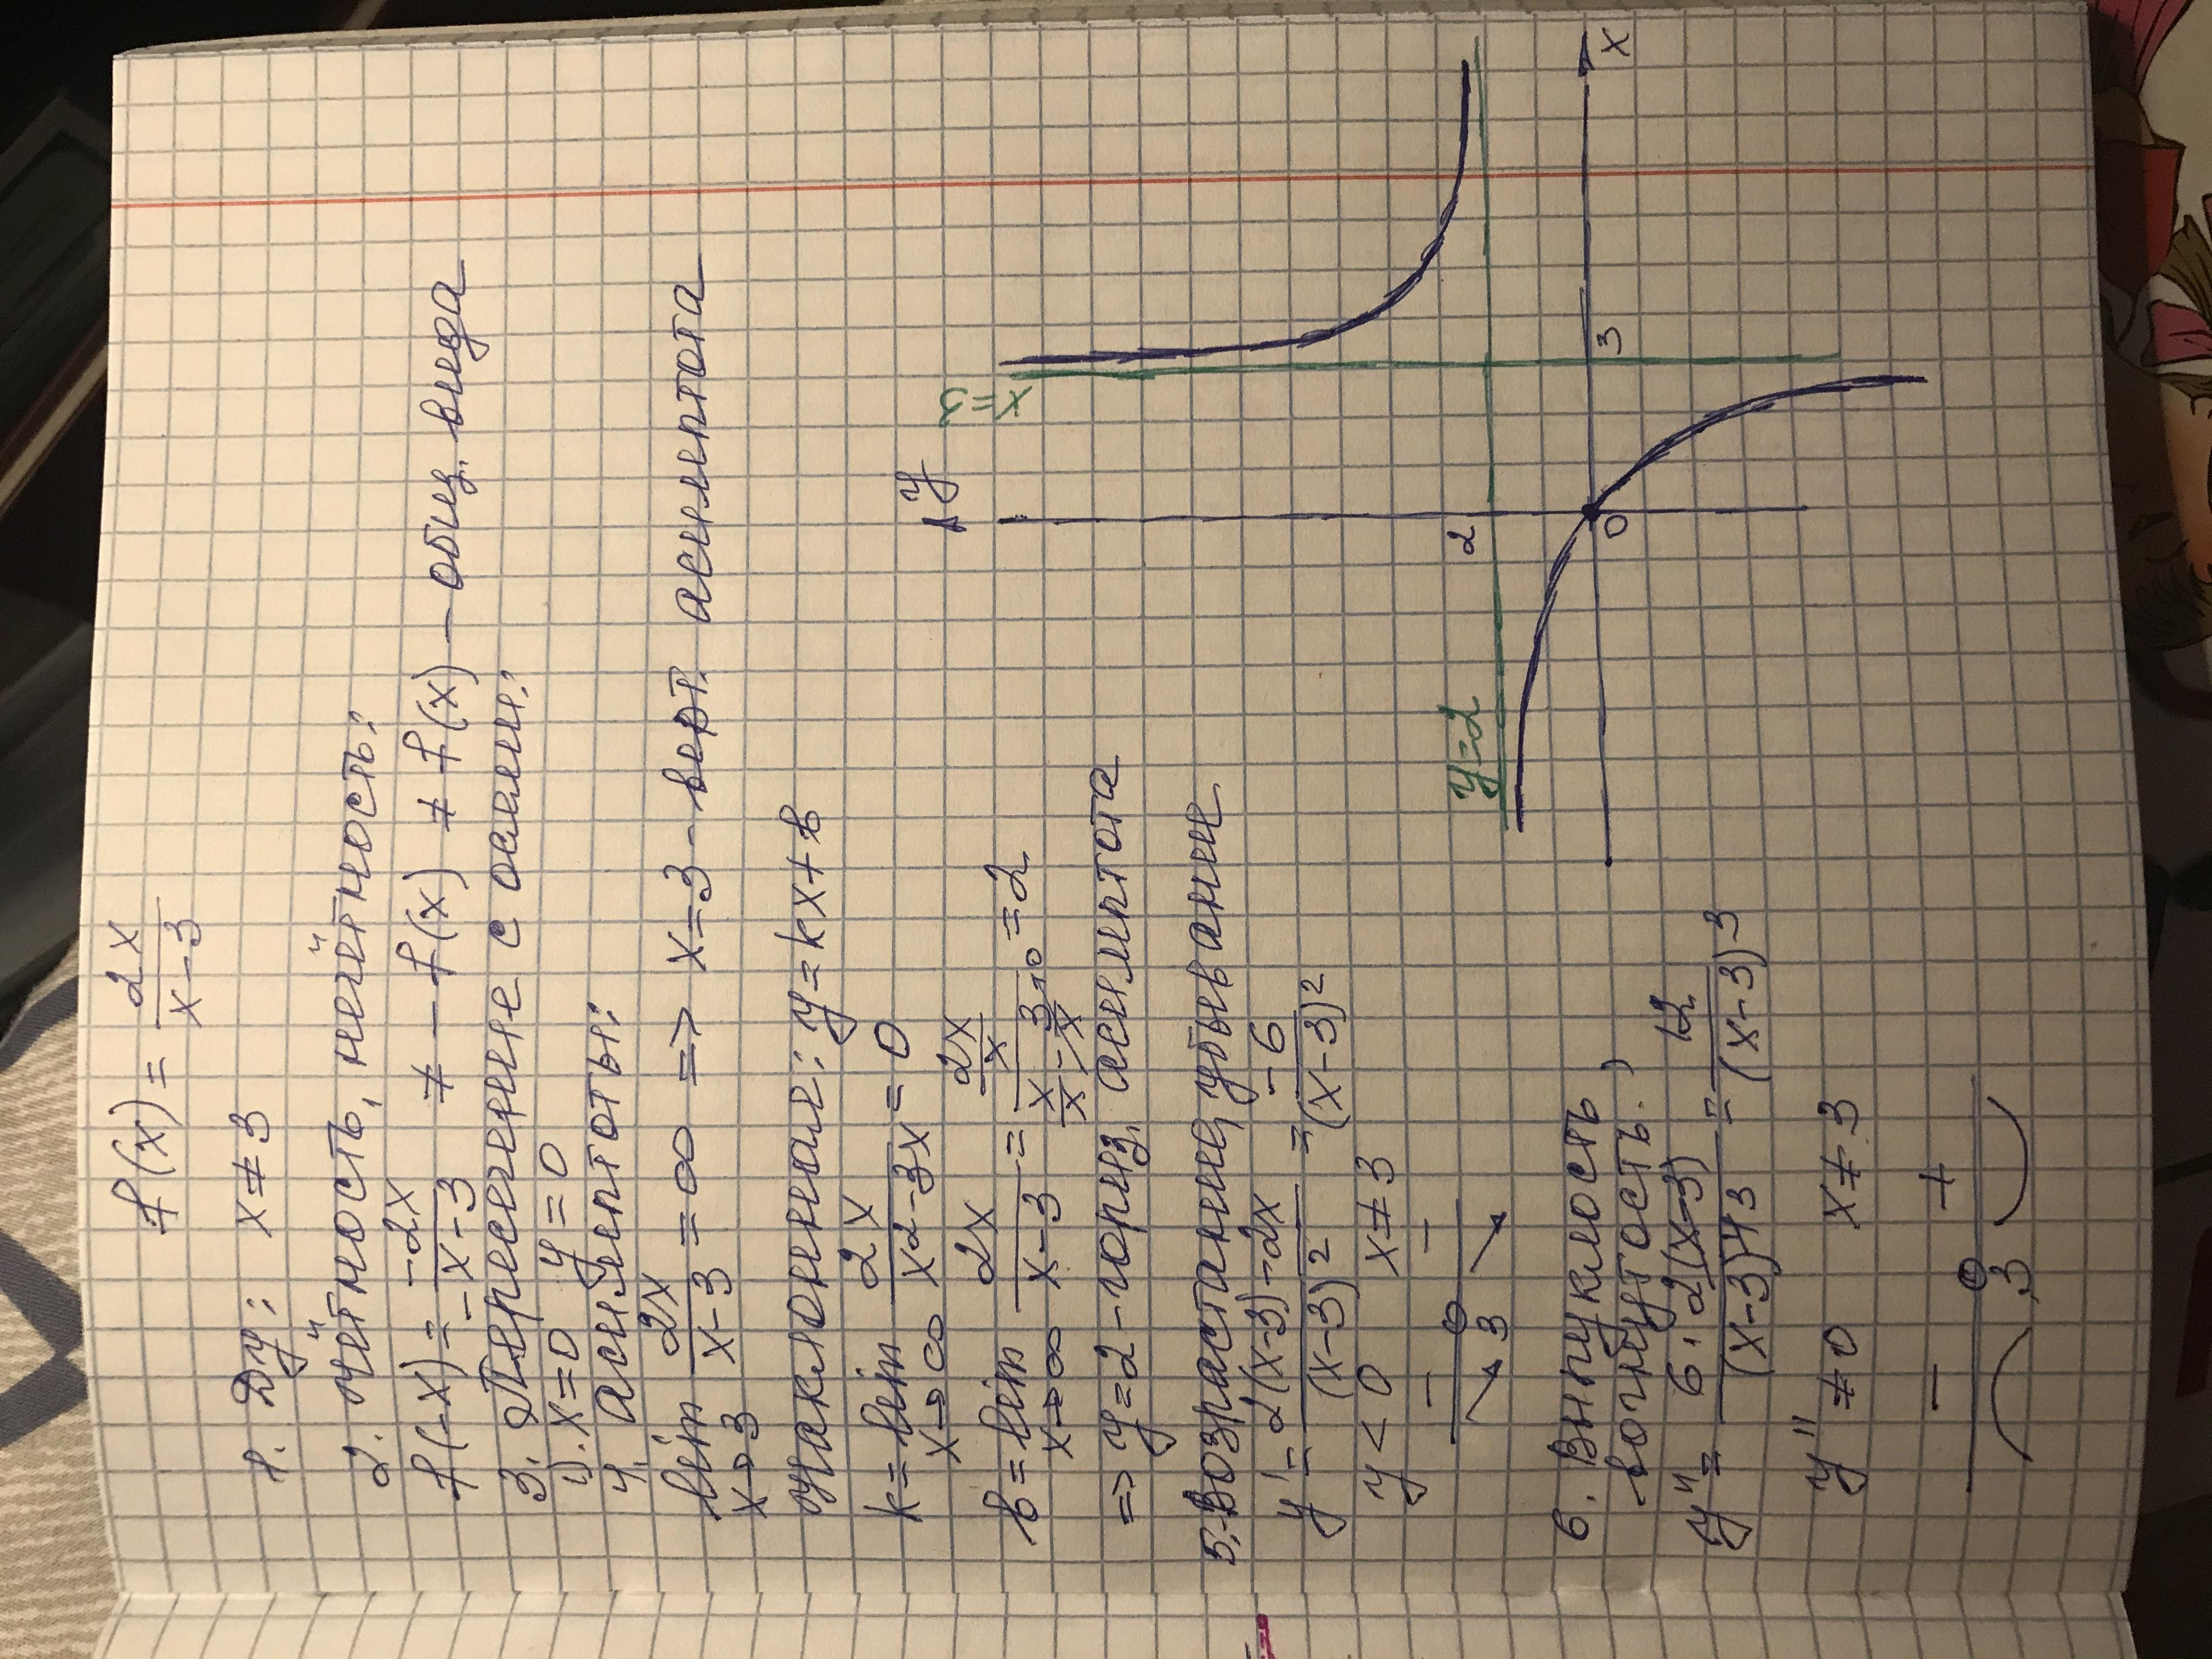 f(x) = 2x/(x-3)
1. Dy: x ≠ 3
2. чётность, нечётность:
f(-x) = -2x/(-x-3) ≠ -f(x) ≠ f(x) - общ. вида
3. Пересечение с осями:
1). x=0 y=0
4. асимптоты:
lim x→3 2x/(x-3) = ∞ => x=3 - верт. асимптота
наклонная: y=kx+b
k = lim x→∞ 2x/(x²-3x) = 0
b = lim x→∞ 2x/(x-3) = (2x/x)/(x/x - 3/x→0) = 2
=> y=2 - гориз. асимптота
5. Возрастание, убывание
y' = (2(x-3)-2x)/(x-3)² = -6/(x-3)²
y < 0 x ≠ 3
- -
3
6. Выпуклость
вогнутость.
y'' = 6·2(x-3)/(x-3)⁴3 = 12/(x-3)³
y'' ≠ 0 x ≠ 3
- +
3
y
x=3
y=2
2
0
3
x